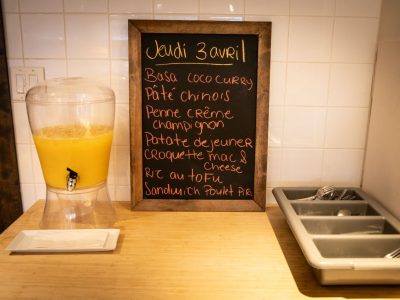 Jeudi 3 avril
Basa coco curry
Pâté chinois
Penne crême
champignon
Patate dejeuner
Croquette mac &
cheese
Riz au tofu
Sandwich Poulet P.R.